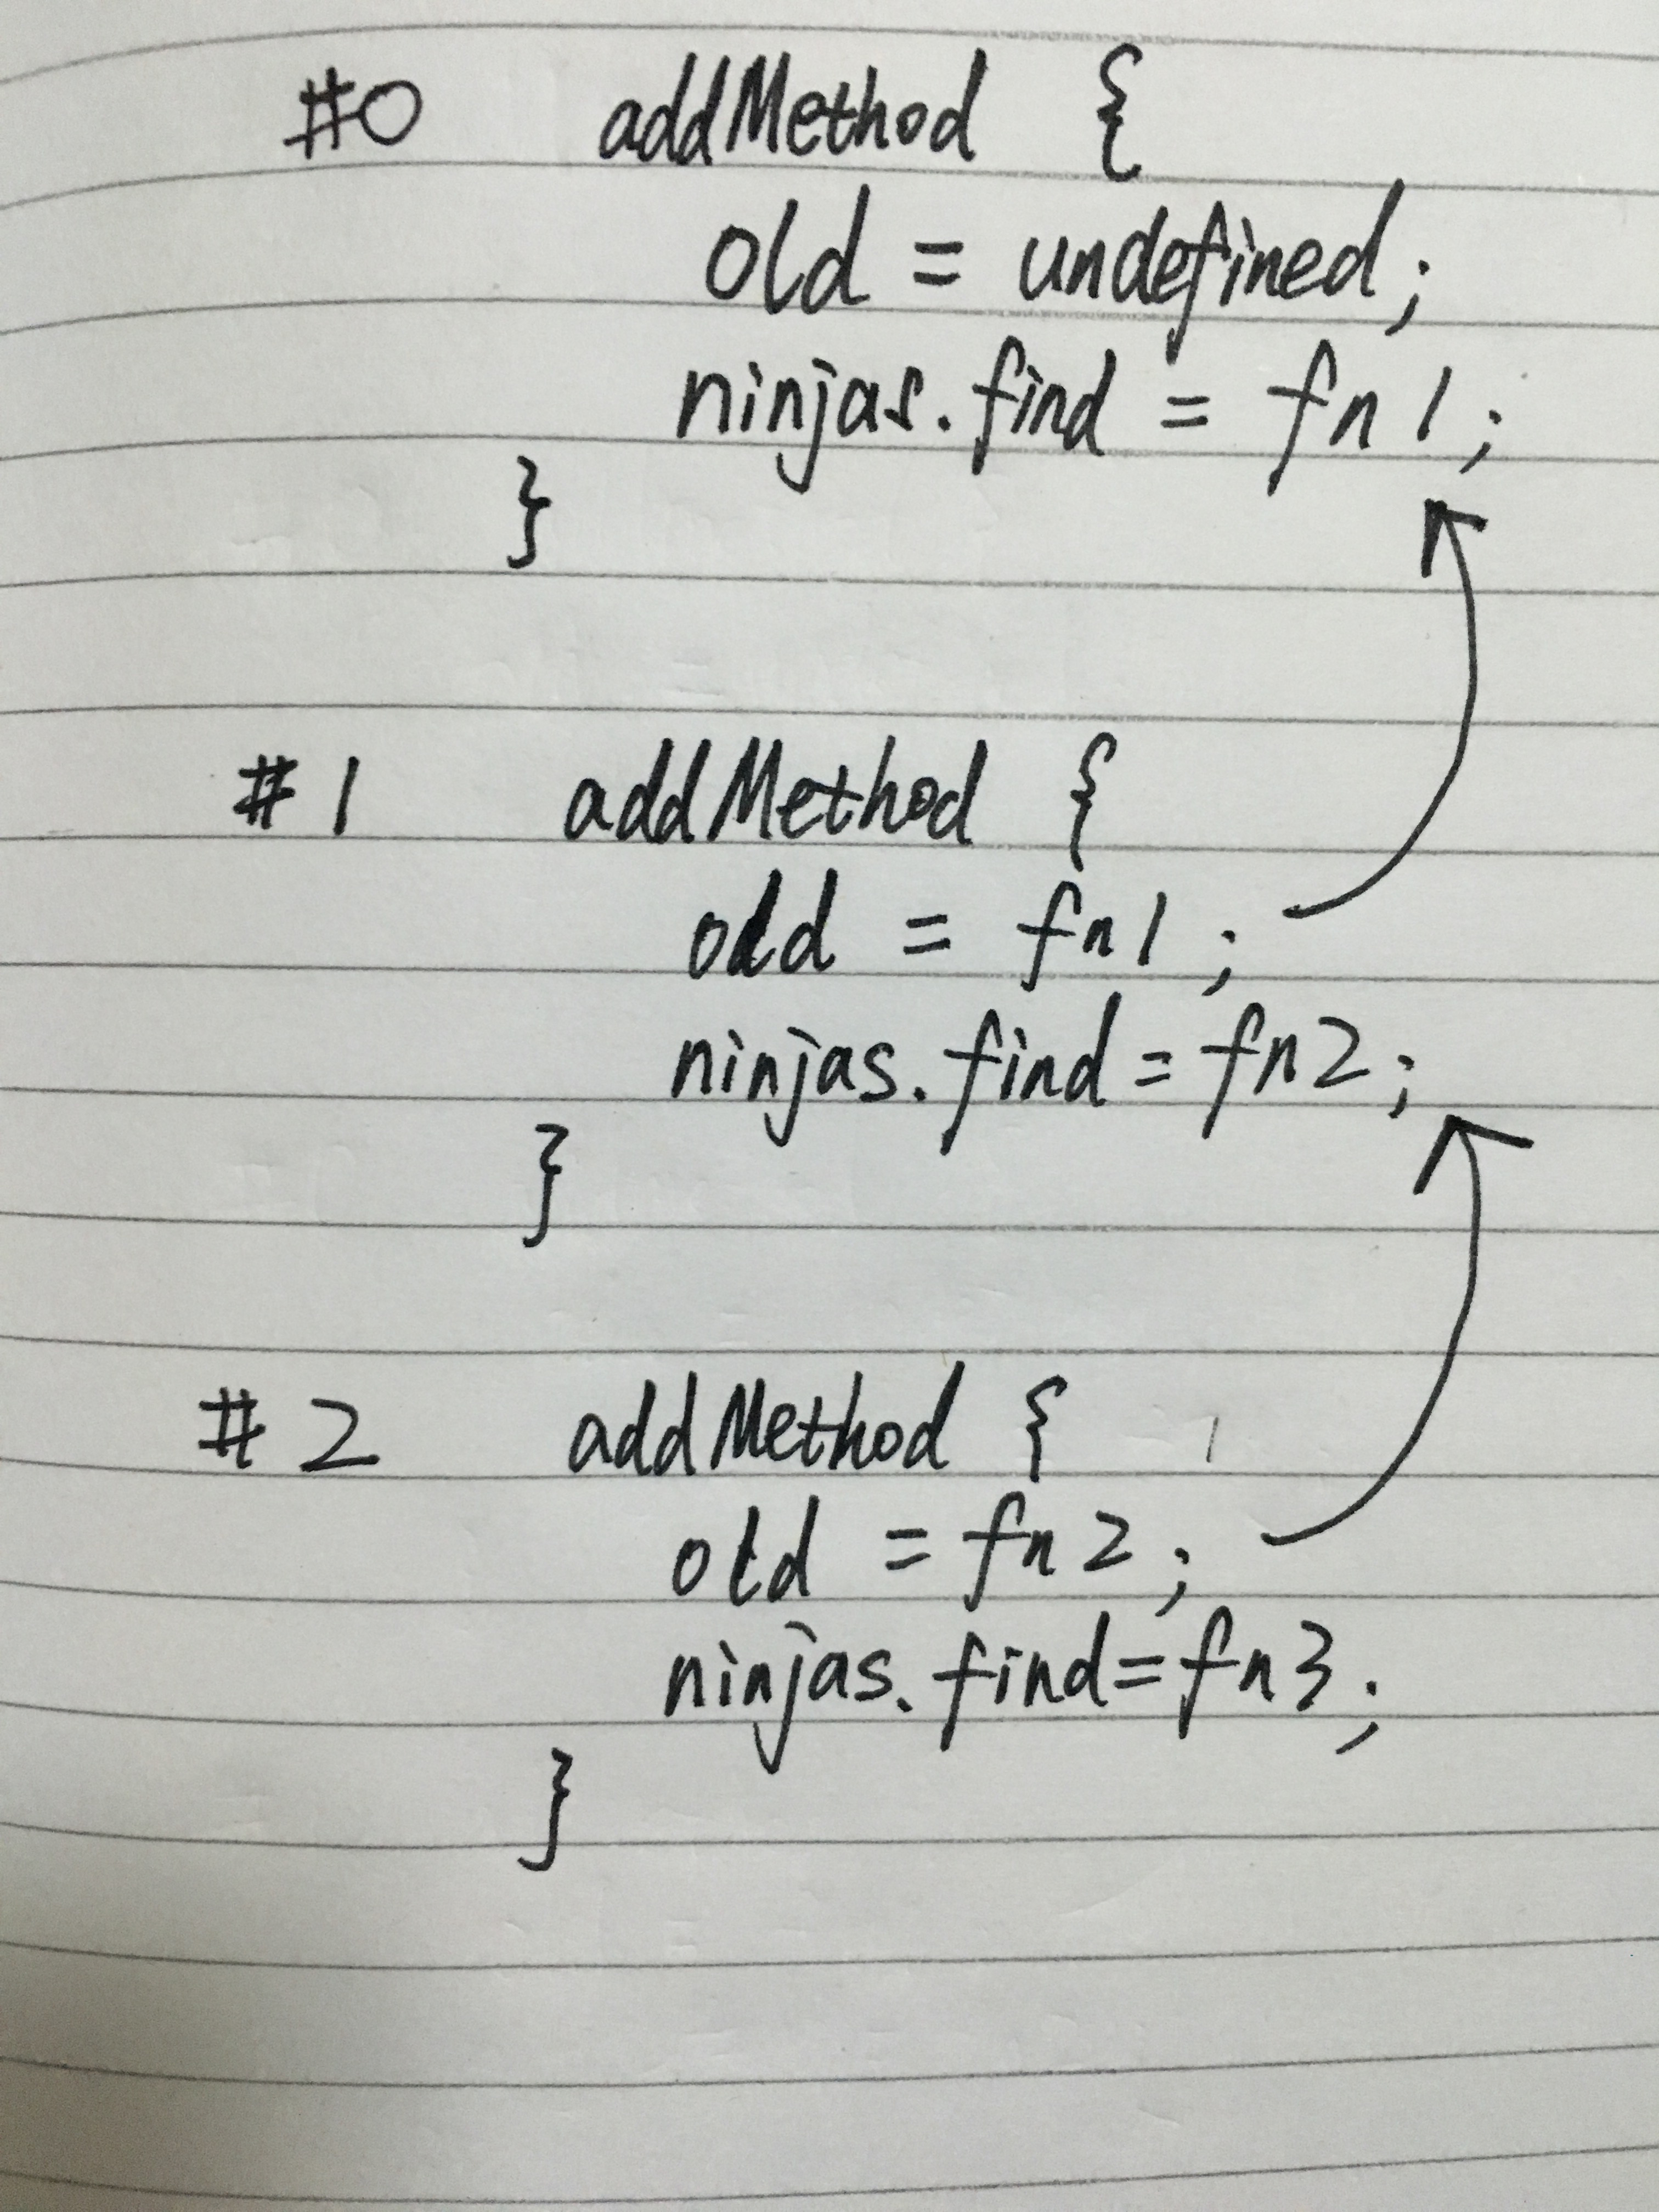 #0 addMethod {
old = undefined;
ninjas.find = fn1;
}
#1 addMethod {
old = fn1;
ninjas.find = fn2;
}
#2 addMethod {
old = fn2;
ninjas.find = fn3;
}